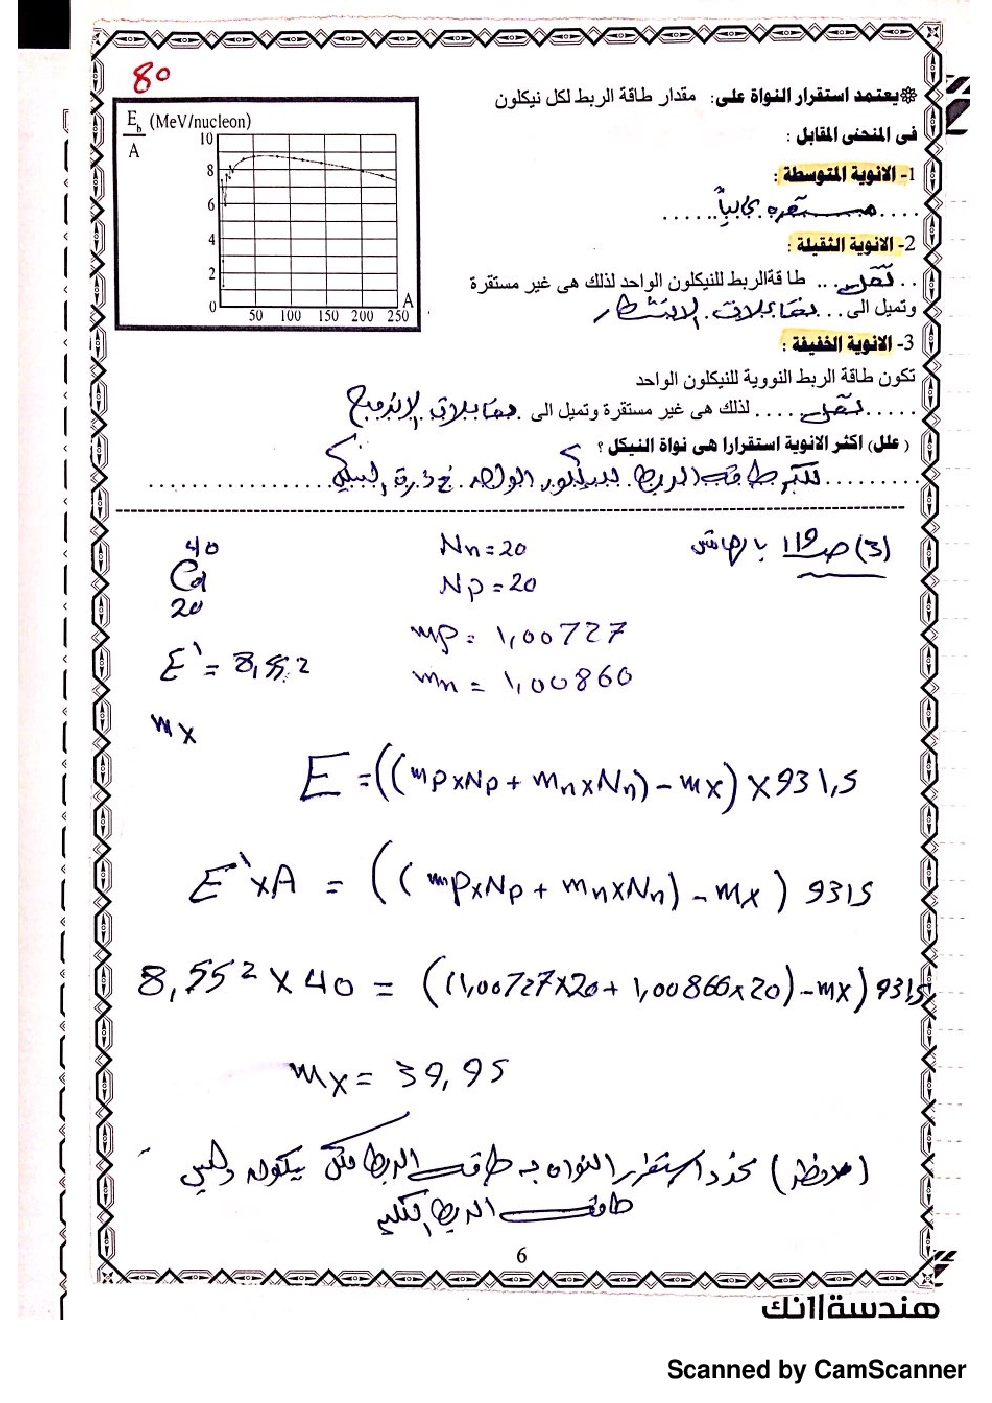 80
❊يعتمد استقرار النواة على: مقدار طاقة الربط لكل نيكلون
فى المنحنى المقابل :
E_b (MeV/nucleon)
A
10
8
6
4
2
0
50 100 150 200 250
A
1- الانوية المتوسطة :
.... مستقره غالباً ......
2- الانوية الثقيلة :
.. تقل ... طاقةالربط للنيكلون الواحد لذلك هى غير مستقرة
وتميل الى ... تفاعلات الانشطار
3- الانوية الخفيفة :
تكون طاقة الربط النووية للنيكلون الواحد
..... تقل .... لذلك هى غير مستقرة وتميل الى . تفاعلات الاندماج
( علل) اكثر الانوية استقرارا هى نواة النيكل ؟
......... لكبر طاقه الربط للنيكلون الواحد في ذرة النيكل ................
(3) ص 119 بالهامش
40
Ca
20
Nn = 20
Np = 20
mp = 1,00727
mn = 1,00860
E\ = 8,552
mx
E = ((mp x Np + mn x Nn) - mx) x 931,5
E\ x A = ((mp x Np + mn x Nn) - mx) 9315
8,552 x 40 = ((1,00727x20 + 1,00866x20) - mx) 9315
mx = 39,95
(ملاحظه) تحدد استقرار النواه ب طاقه الربط لكل نيكلون وليس
طاقه الربط الكليه
6
هندسة||نك
Scanned by CamScanner